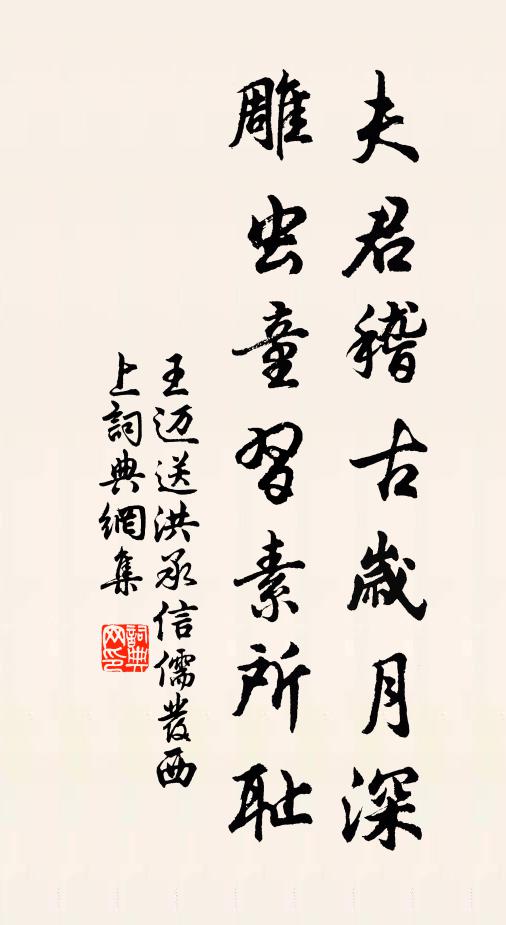 夫君稽古歲月深
雕虫童習素所耻
王迈送洪承信儒發西
上詞典網集
詞典网印